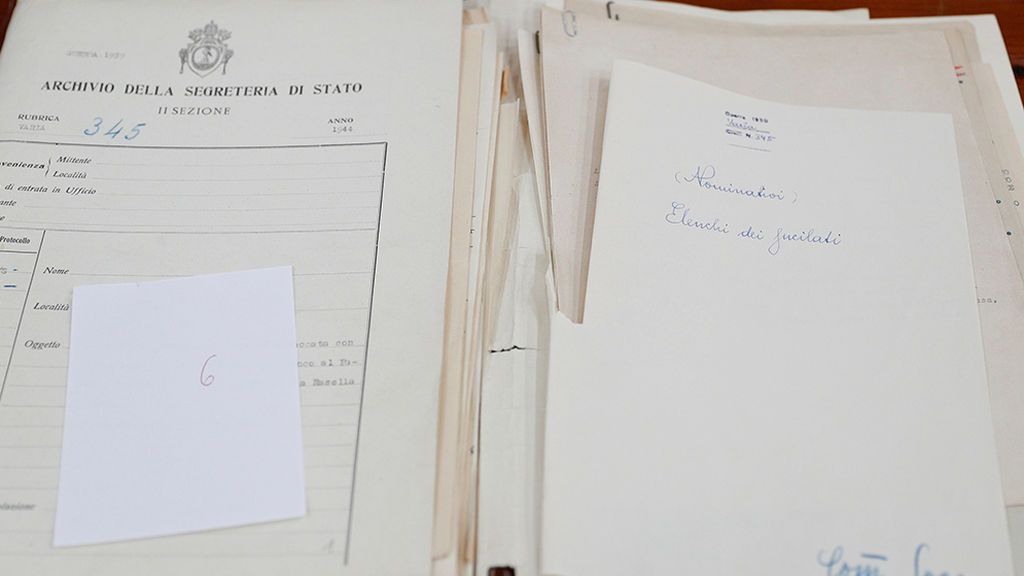 GUERRA 1939
ARCHIVIO DELLA SEGRETERIA DI STATO
II SEZIONE
RUBRICA
VARIA
345
ANNO
1944
venienza
Mittente
Località
di entrata in Ufficio
Protocollo
Nome
Località
Oggetto
con
al
Rasella
6
1
Guerra 1939
Varia
N. 345
(Nominativi)
Elenchi dei fucilati